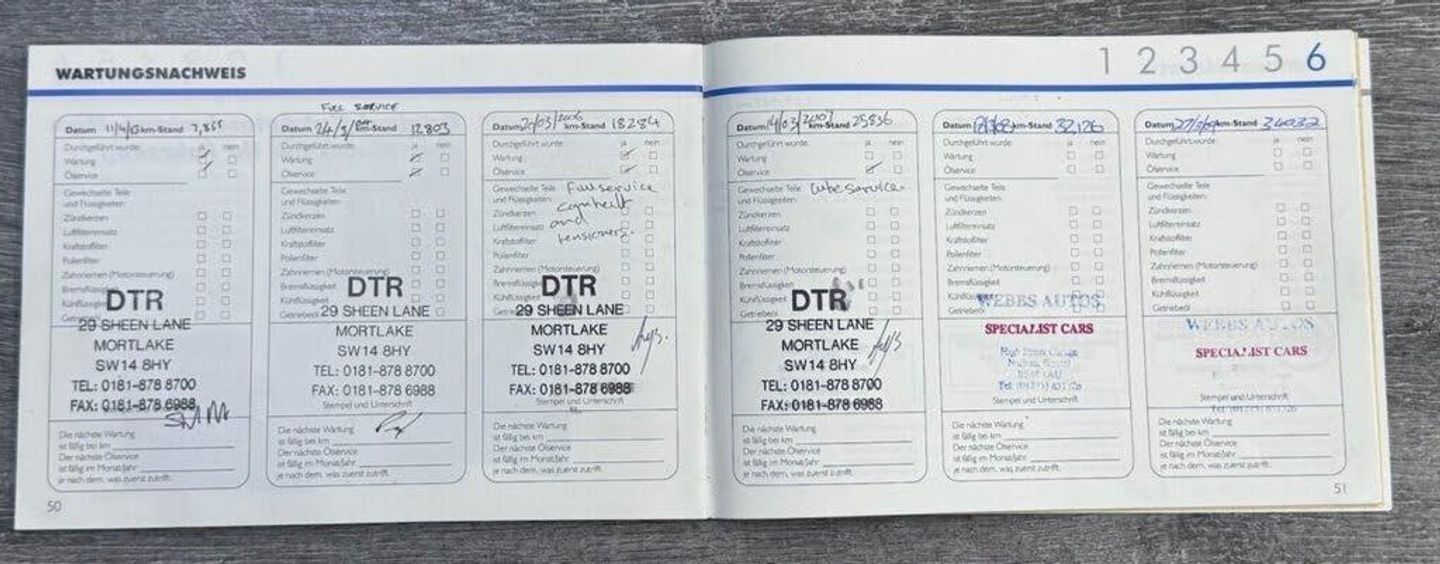 WARTUNGSNACHWEIS
1 2 3 4 5 6
FULL SERVICE
Datum km-Stand
Durchgeführt wurde: ja nein
Wartung
Ölservice
Gewechselte Teile
und Flüssigkeiten:
Zündkerzen
Luftfiltereinsatz
Kraftstoffilter
Pollenfilter
Zahnriemen (Motorsteuerung)
Bremsflüssigkeit
Kühlflüssigkeit
Getriebeöl
DTR
29 SHEEN LANE
MORTLAKE
SW14 8HY
TEL: 0181-878 8700
FAX: 0181-878 6988
Die nächste Wartung
ist fällig bei km
Der nächste Ölservice
ist fällig im Monat/Jahr
je nach dem, was zuerst zutrifft.
Datum 24/3/ km-Stand 12803
Durchgeführt wurde: ja nein
Wartung
Ölservice
Gewechselte Teile
und Flüssigkeiten:
Zündkerzen
Luftfiltereinsatz
Kraftstoffilter
Pollenfilter
Zahnriemen (Motorsteuerung)
Bremsflüssigkeit
Kühlflüssigkeit
Getriebeöl
DTR
29 SHEEN LANE
MORTLAKE
SW14 8HY
TEL: 0181-878 8700
FAX: 0181-878 6988
Stempel und Unterschrift
Die nächste Wartung
ist fällig bei km
Der nächste Ölservice
ist fällig im Monat/Jahr
je nach dem, was zuerst zutrifft.
Datum 20/03/2006 km-Stand 18284
Durchgeführt wurde: ja nein
Wartung
Ölservice
Gewechselte Teile Full service
und Flüssigkeiten: cambelt
Zündkerzen
Luftfiltereinsatz and
Kraftstoffilter tensioners.
Pollenfilter
Zahnriemen (Motorsteuerung)
Bremsflüssigkeit
Kühlflüssigkeit
Getriebeöl
DTR
29 SHEEN LANE
MORTLAKE
SW14 8HY
TEL: 0181-878 8700
FAX: 0181-878 6988
Stempel und Unterschrift
Die nächste Wartung
ist fällig bei km
Der nächste Ölservice
ist fällig im Monat/Jahr
je nach dem, was zuerst zutrifft.
50
Datum 14/03/2007 km-Stand 25836
Durchgeführt wurde: ja nein
Wartung
Ölservice
Gewechselte Teile Lube service.
und Flüssigkeiten:
Zündkerzen
Luftfiltereinsatz
Kraftstoffilter
Pollenfilter
Zahnriemen (Motorsteuerung)
Bremsflüssigkeit
Kühlflüssigkeit
Getriebeöl
DTR
29 SHEEN LANE
MORTLAKE
SW14 8HY
TEL: 0181-878 8700
FAX: 0181-878 6988
Die nächste Wartung
ist fällig bei km
Der nächste Ölservice
ist fällig im Monat/Jahr
je nach dem, was zuerst zutrifft.
Datum km-Stand 32,126
Durchgeführt wurde: ja nein
Wartung
Ölservice
Gewechselte Teile
und Flüssigkeiten:
Zündkerzen
Luftfiltereinsatz
Kraftstoffilter
Pollenfilter
Zahnriemen (Motorsteuerung)
Bremsflüssigkeit
Kühlflüssigkeit
Getriebeöl
WEBBS AUTOS
SPECIALIST CARS
Stempel und Unterschrift
Die nächste Wartung
ist fällig bei km
Der nächste Ölservice
ist fällig im Monat/Jahr
je nach dem, was zuerst zutrifft.
Datum km-Stand 34032
Durchgeführt wurde: ja nein
Wartung
Ölservice
Gewechselte Teile
und Flüssigkeiten:
Zündkerzen
Luftfiltereinsatz
Kraftstoffilter
Pollenfilter
Zahnriemen (Motorsteuerung)
Bremsflüssigkeit
Kühlflüssigkeit
Getriebeöl
WEBBS AUTOS
SPECIALIST CARS
Stempel und Unterschrift
Die nächste Wartung
ist fällig bei km
Der nächste Ölservice
ist fällig im Monat/Jahr
je nach dem, was zuerst zutrifft.
51